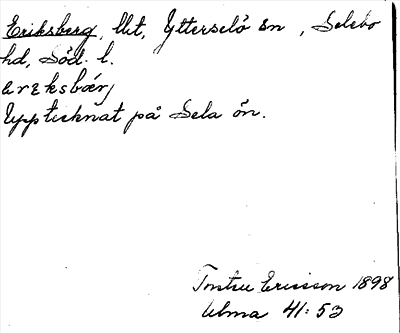 Eriksberg, lht, Ytterselö sn, Selebo
hd, Söd. l.
ereksbær,
Upptecknat på Sela ön.
Ericsson 1898
Ulma 41:53